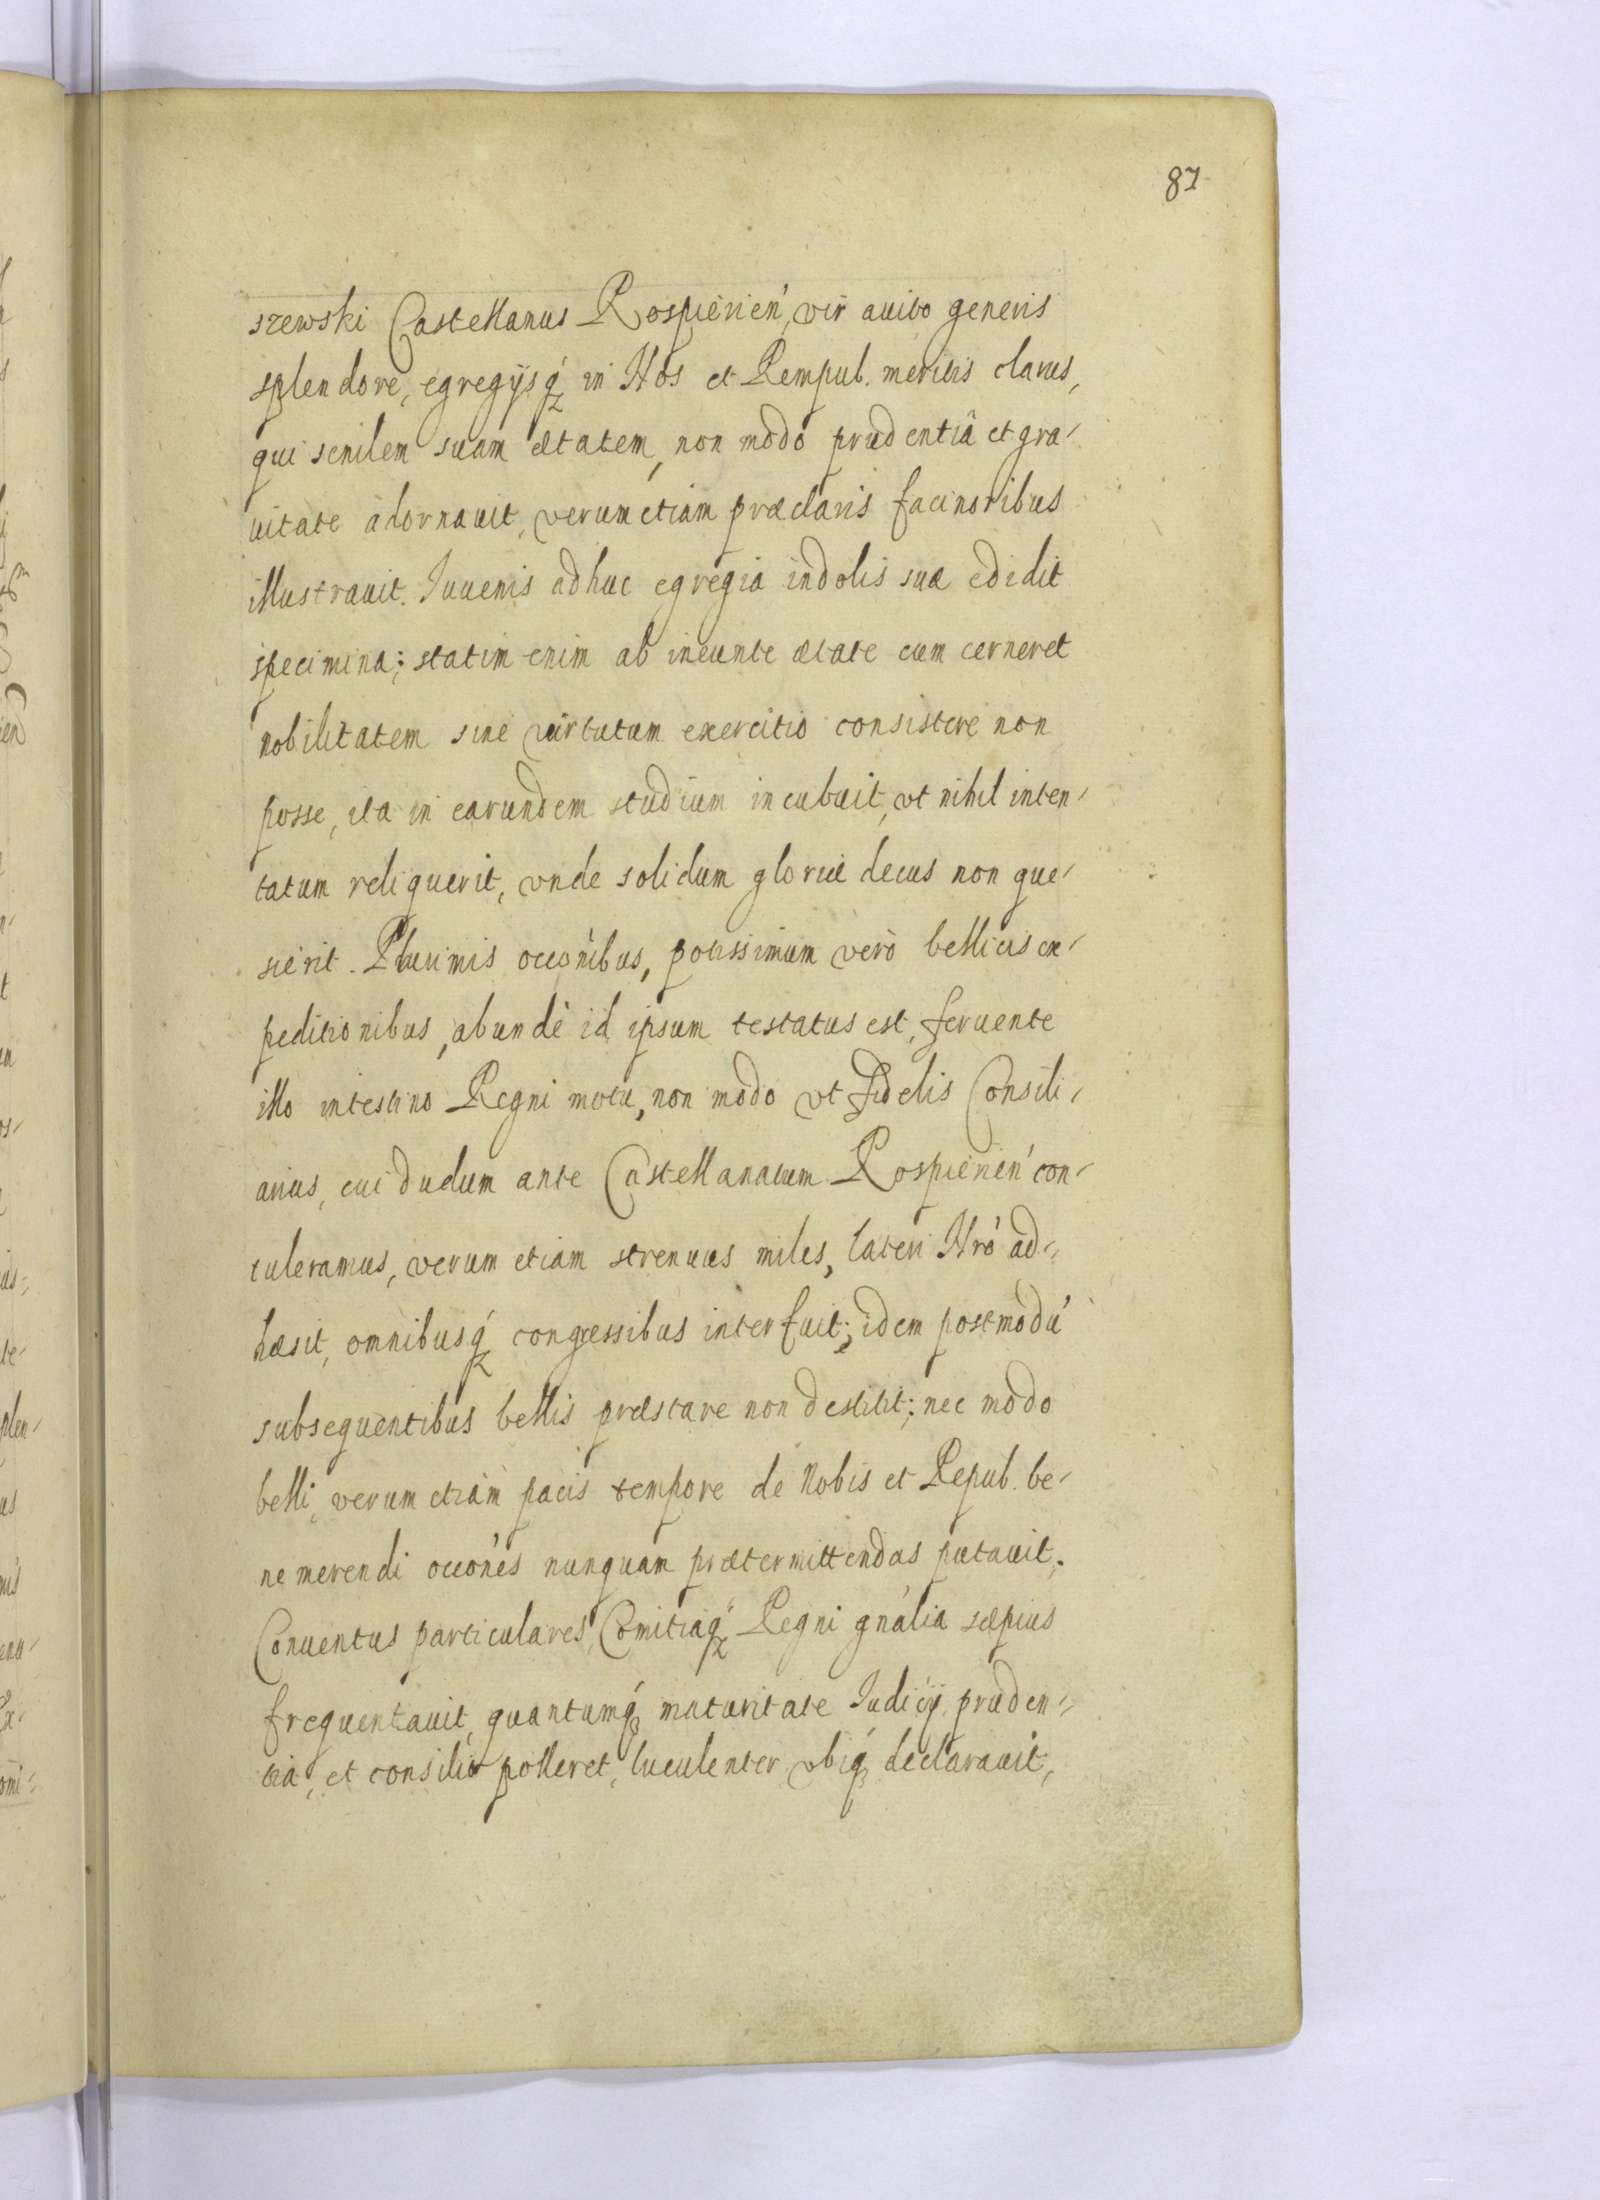 87
szewski Castellanus Rospirien, vir auito generis
splendore, egregijsq́ in Nos et Rempub. meritis clarus,
qui senilem suam ætatem, non modo prudentiâ et gra-
uitate adornauit, verum etiam præclaris facinoribus
illustrauit. Iuuenis adhuc egregia indolis suæ edidit
specimina; statim enim ab ineunte ætate cum cerneret
nobilitatem sine virtutum exercitio consistere non
posse, ita in earundem studium incubuit, vt nihil inten-
tatum reliquerit, vnde solidum gloriæ decus non que-
sierit. Plurimis occōnibus, potissimum verò bellicis ex-
peditionibus, abundè id ipsum testatus est, feruente
illo intestino Regni motu, non modo vt fidelis Consili-
arius, cui dudum ante Castellanatum Rospirien con-
tuleramus, verum etiam strenuus miles, lateri Nrō ad-
hæsit, omnibusq́ congressibus interfuit; idem postmodū
subsequentibus bellis præstare non destitit; nec modo
belli, verum etiam pacis tempore de Nobis et Repub. be-
ne merendi occōnes nunquam prætermittendas putauit.
Conuentus particulares, Comitiaq́ Regni gnālia sæpius
frequentauit, quantumq́ maturitate Iudicij, pruden-
tia, et consilio polleret, luculenter vbiq́ declarauit,